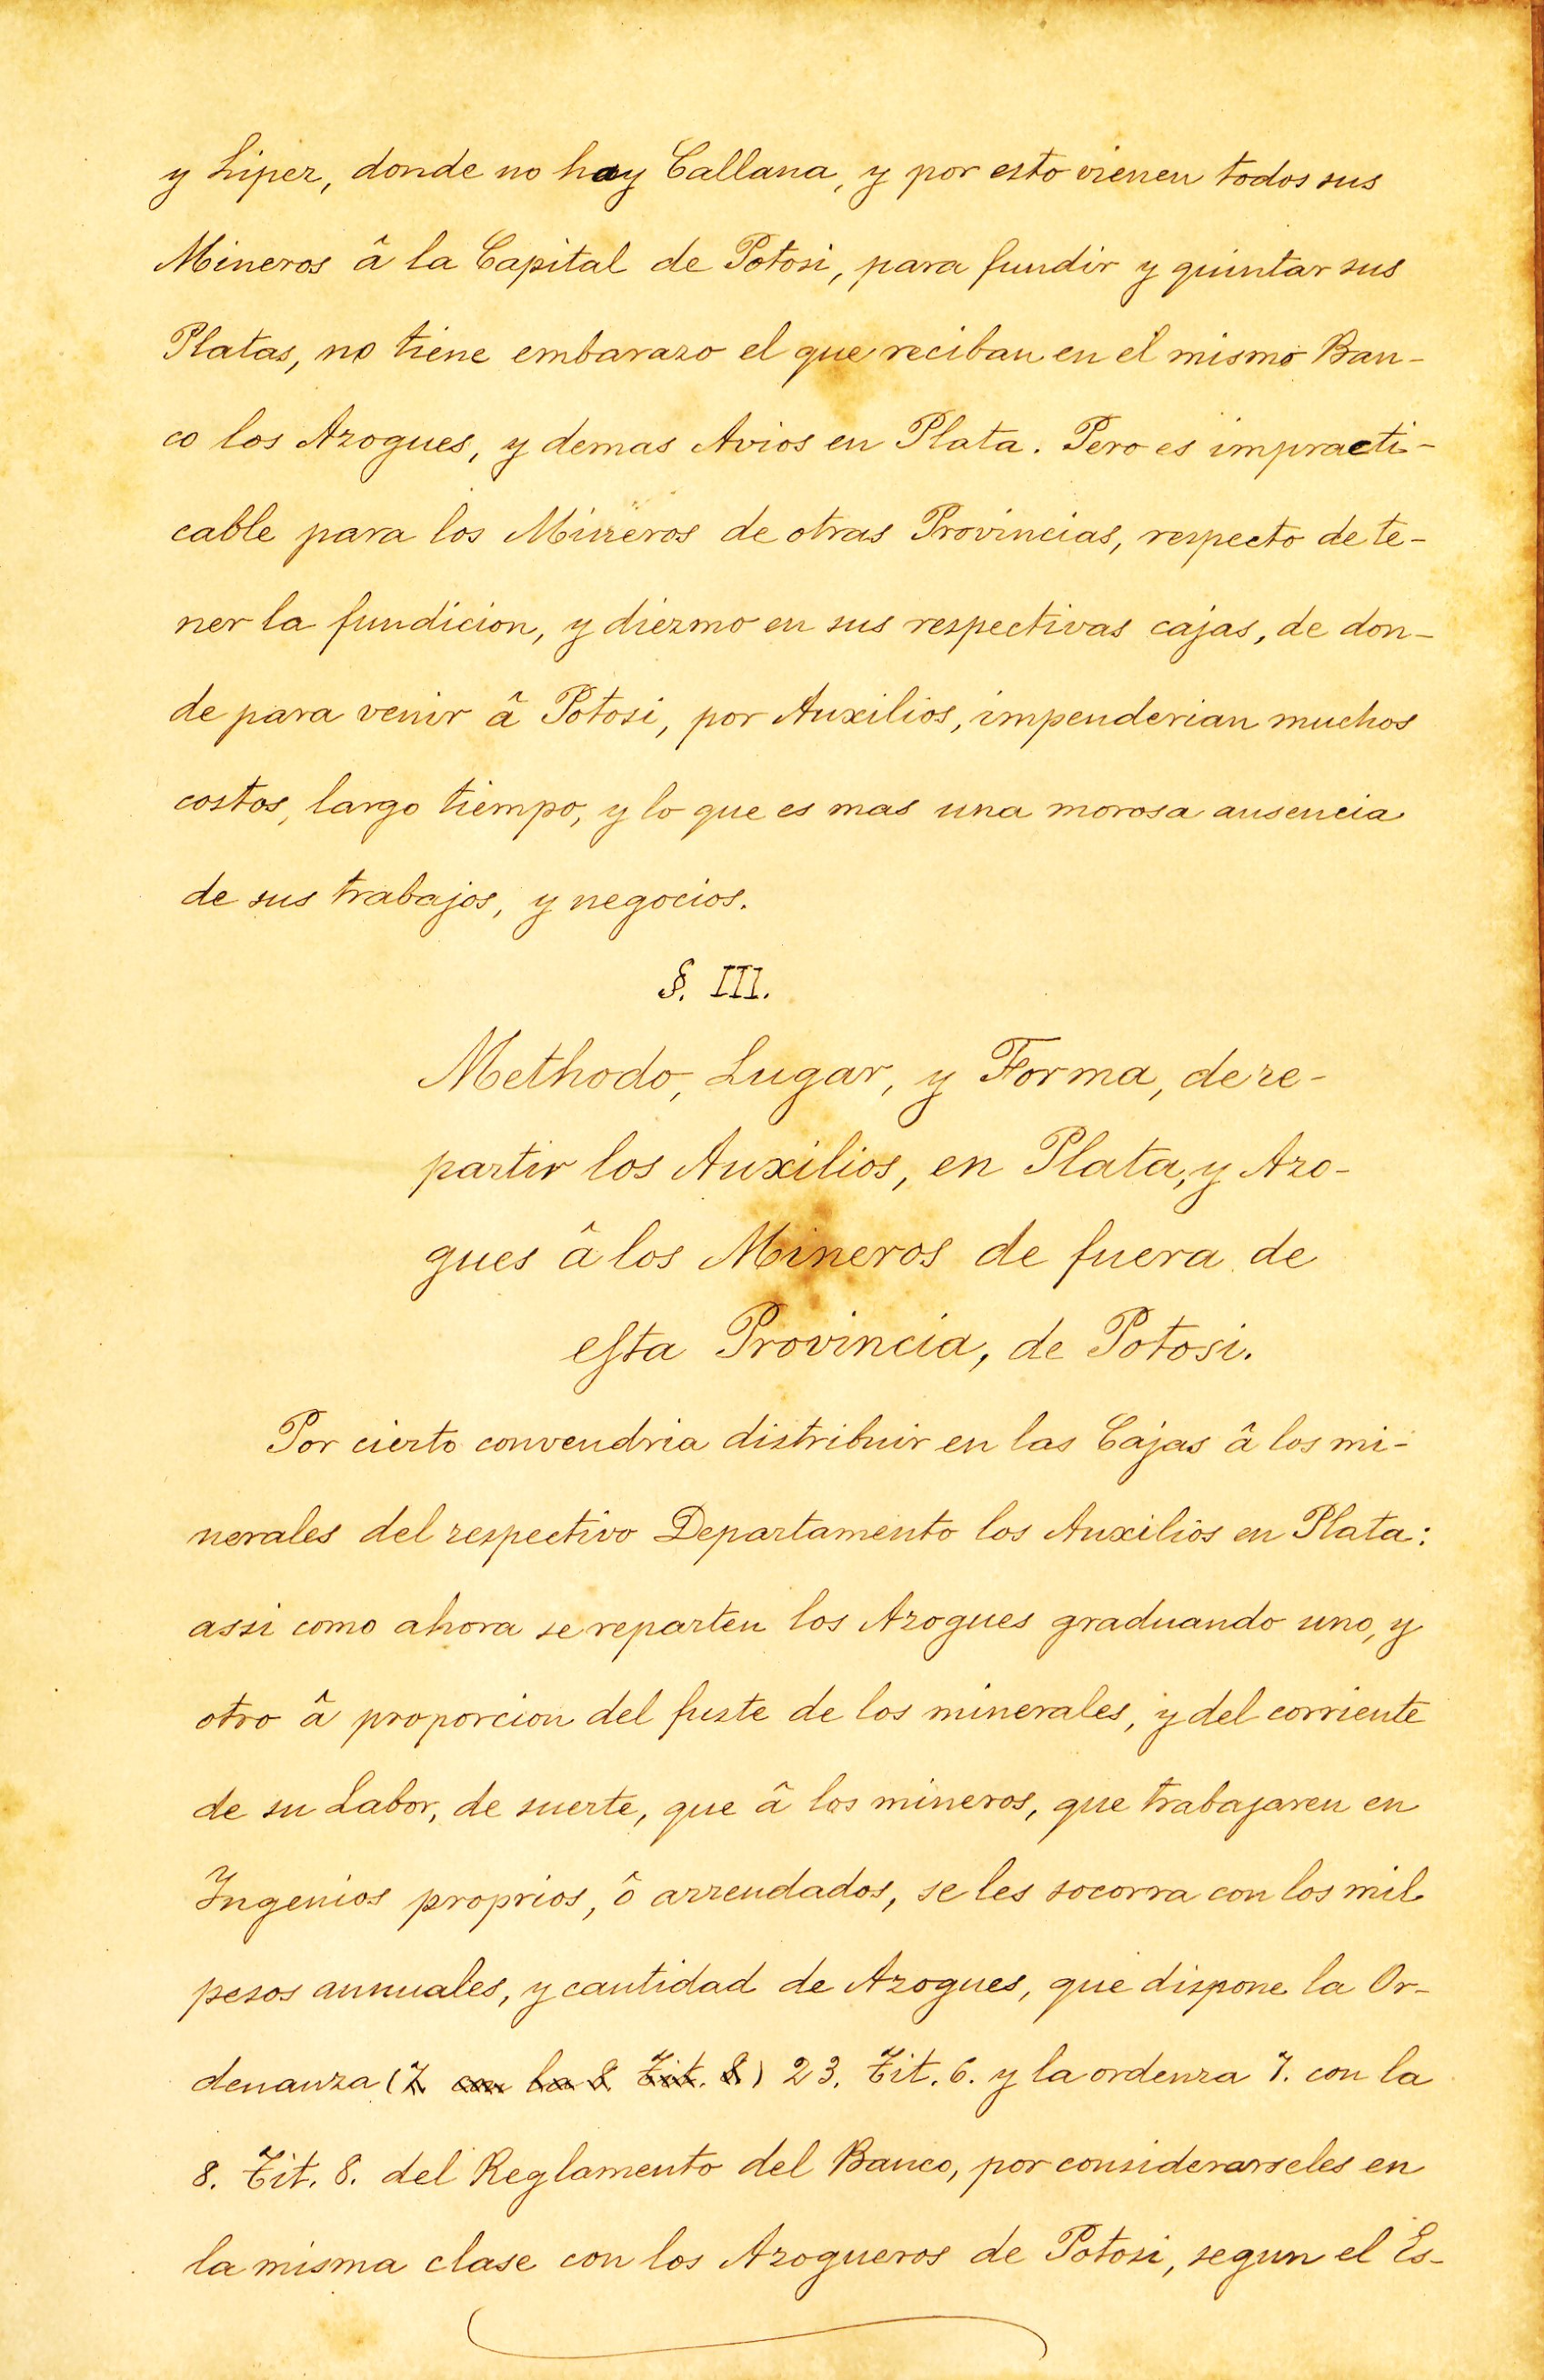 y Liper, donde no hay Callana, y por esto vienen todos sus
Mineros â la Capital de Potosi, para fundir y quintar sus
Platas, no tiene embarazo el que reciban en el mismo Ban-
co los Azogues, y demas Avios en Plata. Pero es impracti-
cable para los Mineros de otras Provincias, respecto de te-
ner la fundicion, y diezmo en sus respectivas cajas, de don-
de para venir â Potosi, por Auxilios, impenderian muchos
costos, largo tiempo, y lo que es mas una morosa ausencia
de sus trabajos, y negocios.
§. III.
Methodo, Lugar, y Forma, de re-
partir los Auxilios, en Plata, y Azo-
gues â los Mineros de fuera de
esta Provincia, de Potosi.
Por cierto convendria distribuir en las Cajas â los mi-
nerales del respectivo Departamento los Auxilios en Plata:
assi como ahora se reparten los Azogues graduando uno, y
otro â proporcion del fuste de los minerales, y del corriente
de su Labor, de suerte, que â los mineros, que trabajaren en
Ingenios proprios, ô arrendados, se les socorra con los mil
pesos annuales, y cantidad de Azogues, que dispone la Or-
denanza (7 con la 8 Tit. 8.) 23. Tit. 6. y la ordenza 7. con la
8. Tit. 8. del Reglamento del Banco, por considerarseles en
la misma clase con los Azogueros de Potosi, segun el Es-